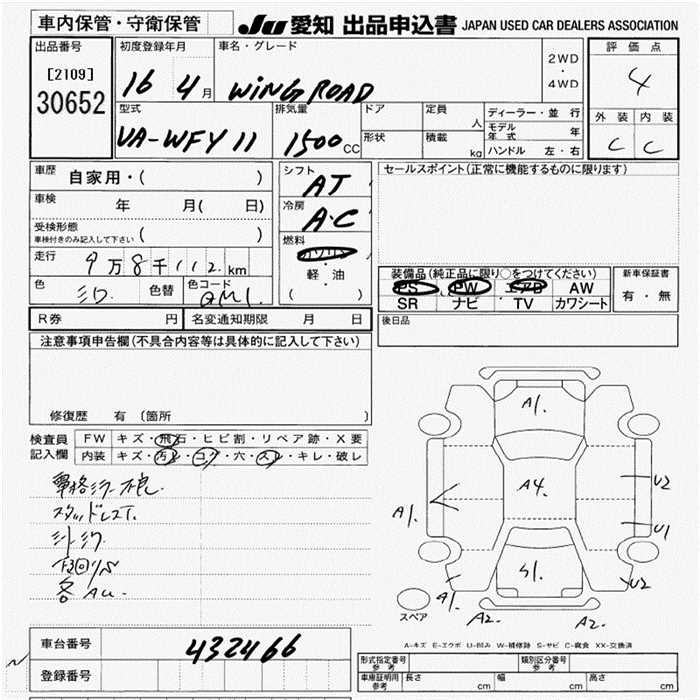 車内保管・守衛保管
JU 愛知 出品申込書 JAPAN USED CAR DEALERS ASSOCIATION
出品番号
[2109]
30652
初度登録年月
16 4月
車名・グレード
WiNG ROAD
2WD
・
4WD
評価点
4
外装 内装
C C
型式
UA-WFY11
排気量
1500 cc
ドア
形状
定員 人
積載 kg
ディーラー・並行
モデル年式 年
ハンドル 左・右
車歴
自家用・( )
車検
年 月( 日)
受検形態
車検付きのみ記入して下さい ( )
走行
9万8千112km
色
シロ
色替
色コード
QM1
シフト
AT
冷房
A・C
燃料
ガソリン
・
軽・油
( )
セールスポイント(正常に機能するものに限ります)
装備品(純正品に限り○をつけてください)
PS PW エアB AW
SR ナビ TV カワシート
新車保証書
有・無
後日品
R券 円
名変通知期限 月 日
注意事項申告欄(不具合内容等は具体的に記入して下さい)
修復歴 有(箇所 )
検査員
記入欄
FW キズ・飛石・ヒビ割・リペア跡・X要
内装 キズ・汚レ・コゲ・穴・スレ・キレ・破レ
スタッドレスT.
下回リS
各AU.
A1.
A4.
S1.
A1.
U2
U1
U2
A1.
A2.
A2.
スペア
A-キズ E-エクボ U-凹み W-補修跡 S-サビ C-腐食 XX-交換済
車台番号
432466
登録番号
形式指定番号
参考
類別区分番号
参考
車庫証明用
参考
長さ cm
幅 cm
高さ cm